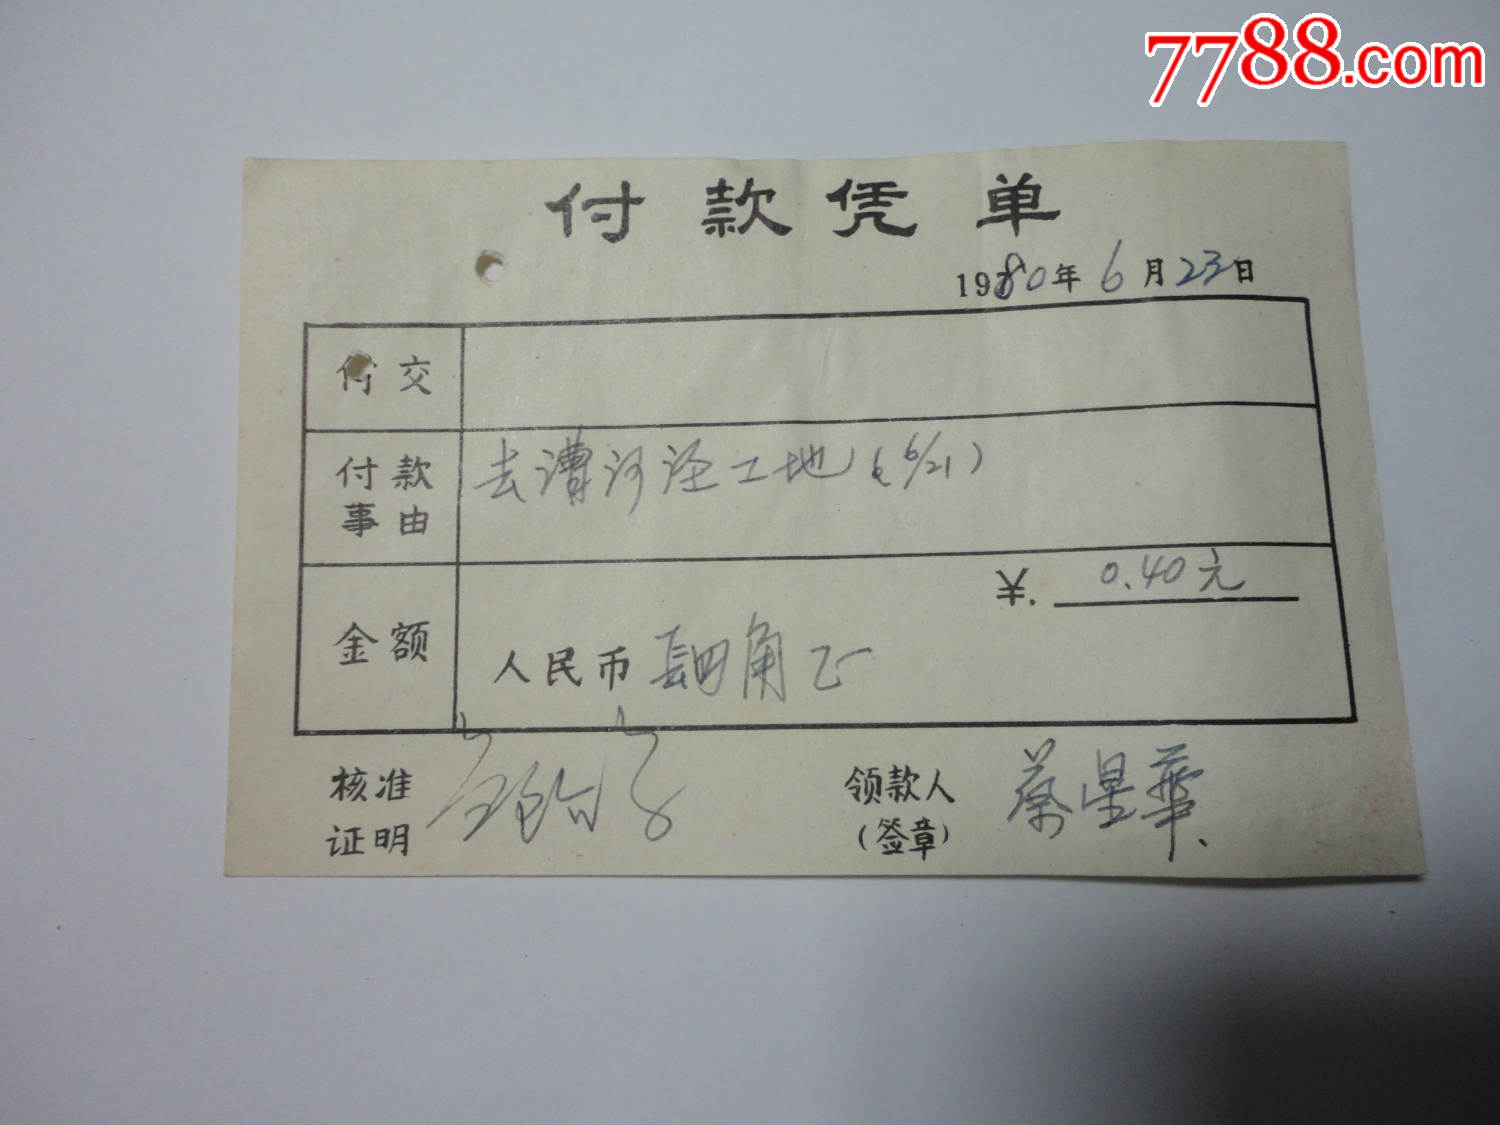 7788.com
付款凭单
1980年6月23日
付交
付款事由
去漕河泾工地（6/21）
金额
¥. 0.40元
人民币 四角正
核准
证明
领款人
（签章）
蔡星华